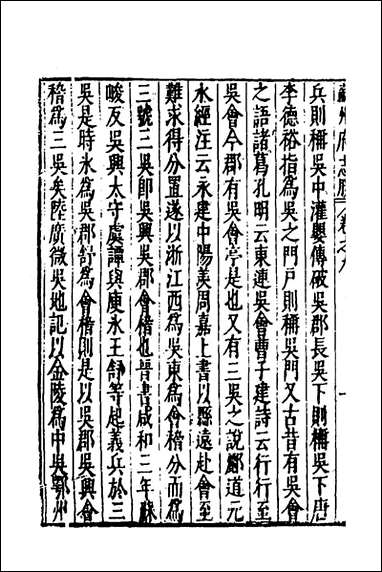 蘇州府志勝 卷之九
兵則稱吳中灌嬰傳破吳郡長吳下則稱吳下唐
李德裕指為吳之門戶則稱吳門又古昔有吳會
之語諸葛孔明云東連吳會曹子建詩云行行至
吳會今郡有吳會亭是也又有三吳之說酈道元
水經注云永建中陽羡周嘉上書以縣遠赴會至
難求得分置遂以浙江西為吳東為會稽分而為
三號三吳即吳興吳郡會稽也晉書咸和三年蘇
峻反吳興太守虞潭與庾冰王舒等起義兵於三
吳是時冰為吳郡舒為會稽則是以吳郡吳興會
稽為三吳矣陸廣微吳地記以金陵為中吳鄂州